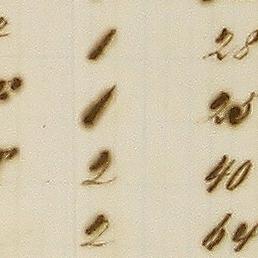 1 28
1 25
2 40
2 64